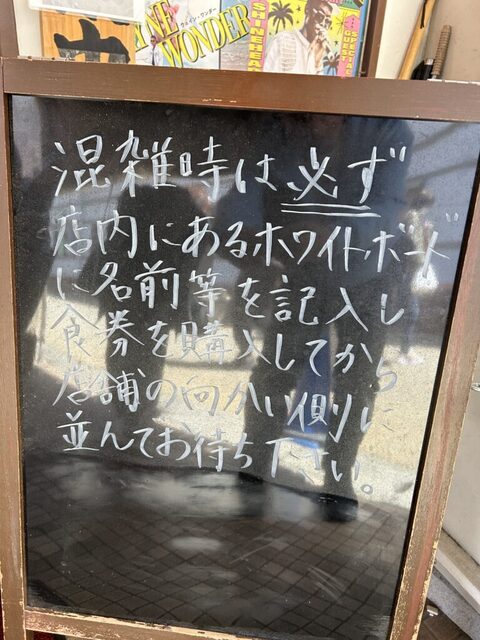 WONDER
SHINEHEAD
SPECIAL
GUEST
混雑時は必ず
店内にあるホワイトボード
に名前等を記入し
食券を購入してから
店舗の向かい側に
並んでお待ち下さい。